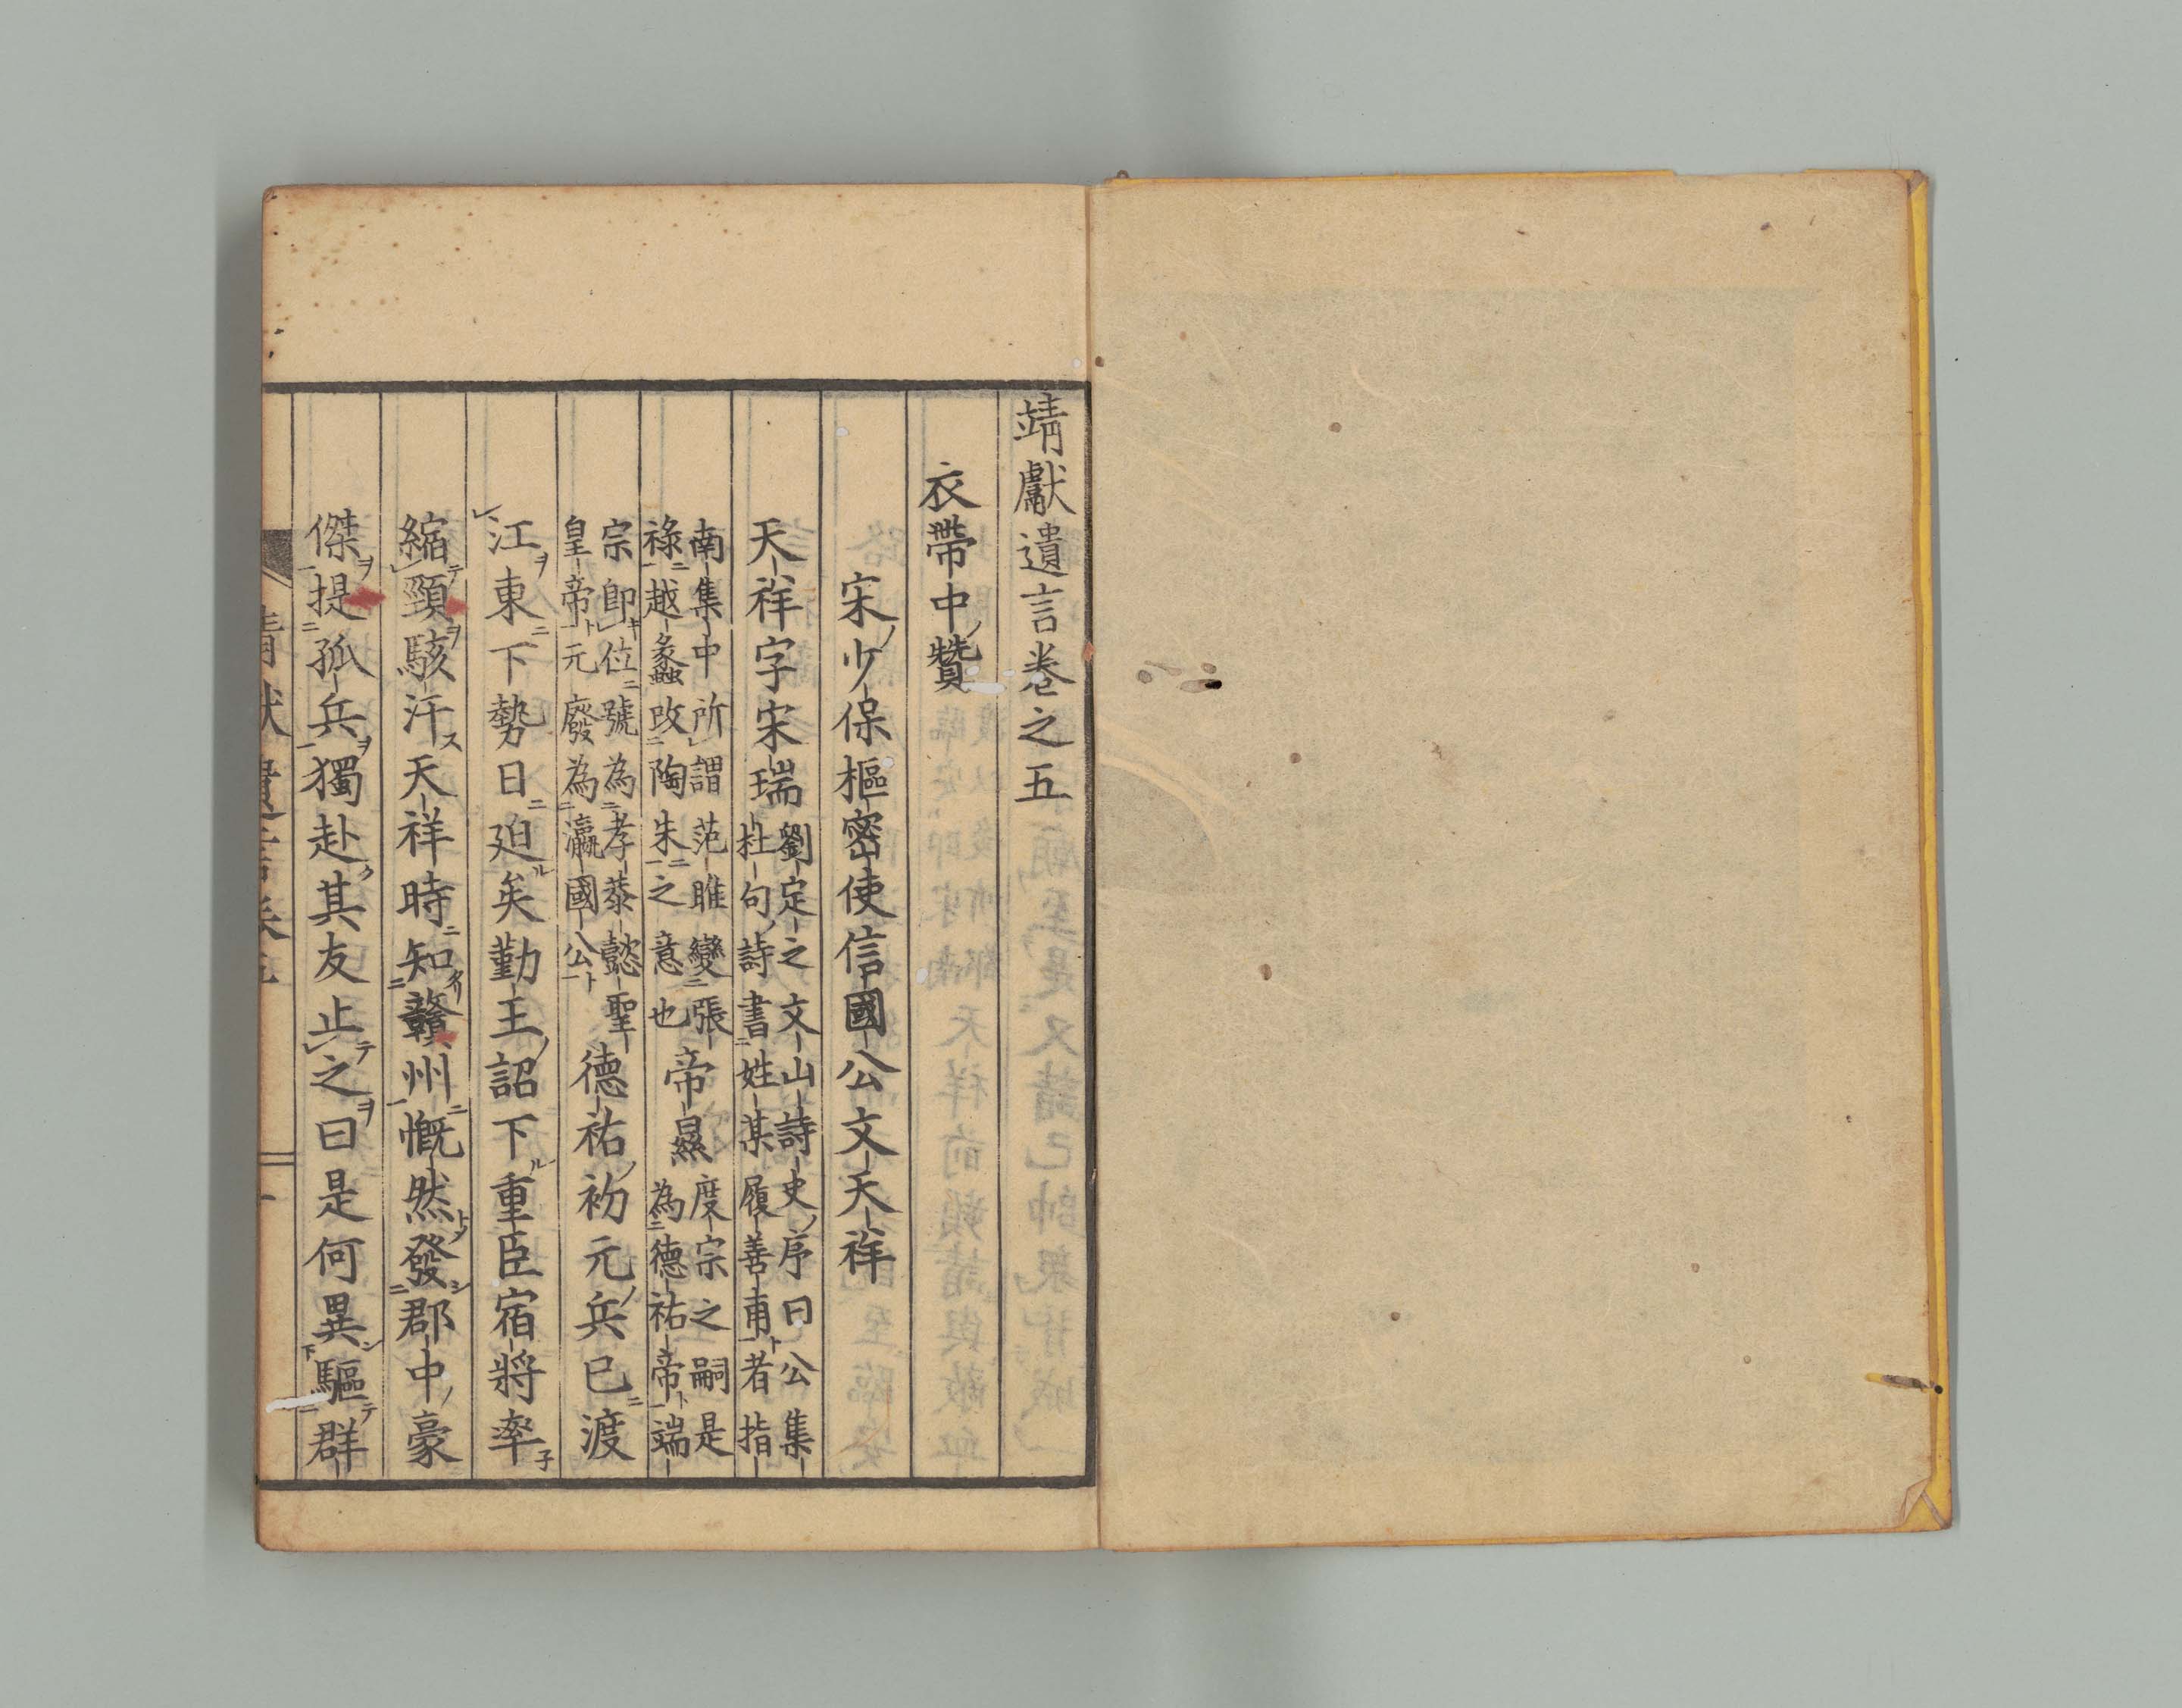 靖獻遺言卷之五
衣帶中贊
宋少保樞密使信國公文天祥
天祥字宋瑞劉定之文山詩史序曰公集杜句詩書姓某履善甫者指
南集中所謂范睢變張祿越蠡改陶朱之意也帝㬎度宗之嗣是為德祐帝端
宗即位號為孝恭懿聖皇帝元廢為瀛國公德祐初元兵已渡
江東下勢日迫矣勤王詔下重臣宿將率
縮頸駭汗天祥時知贛州慨然發郡中豪
傑提孤兵獨赴其友止之曰是何異驅群
靖獻遺言卷五